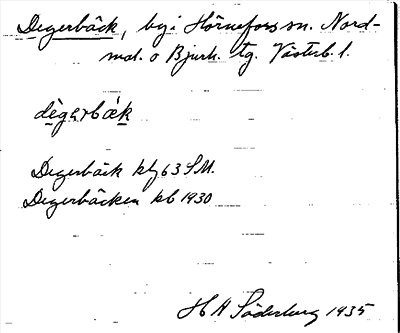 Degerbäck, by i Hörnefors sn. Nord-
mal. o Bjurh. tg. Västerb. l.
dègarbæ̀k
Degerbäck klj 63 S.M.
Degerbäcken kb 1930
H A Söderberg 1935